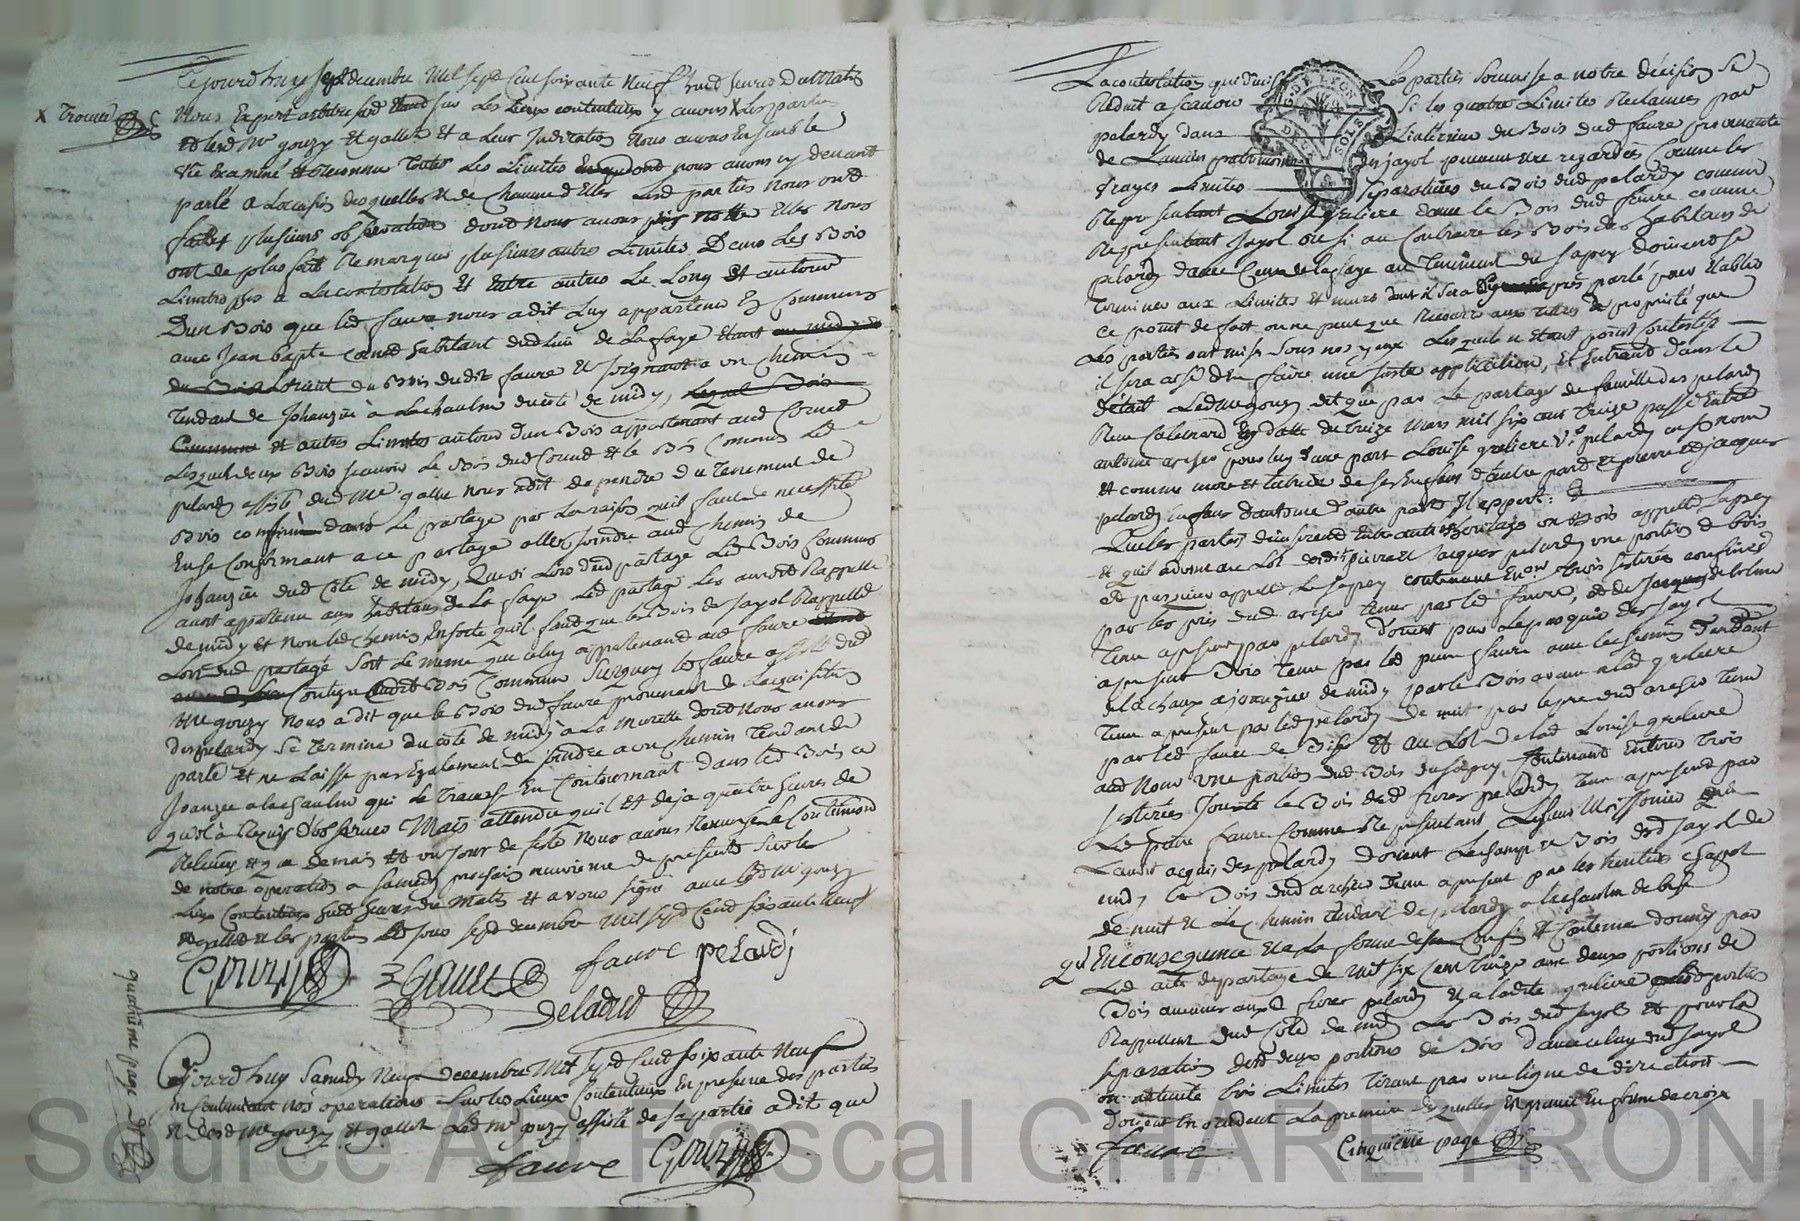 Cejourdhuy sept decembre Mil sept Cent soixante Neuf huit heures Du Matin
X Trouvé
Nous Expert arbitre sur Les Lieux contentieux y avons X Les parties
et led Me gouzy et gallet et a Leur Indication Nous avons Ensemble
Vu Examiné et Reconnu toutes Les Limites dont nous avons cy devant
parlé a Loccasion desquelles et de Chacune d'Elles Led parties Nous ont
fait plusieurs observations dont Nous avons pris notte Elles Nous
ont de plus fait Remarquer plusieurs autres Limites Dans Les Bois
Limitrophes a La contestation Et Entre autres Le Long Et autour
D'un Bois que led faure nous a dit Luy appartenir En Commun
avec Jean bapte Cornet habitant dud Lieu de La faye
du Bois dudit faure et Joignant a un Chemin
Tendant de Johanzié à Lachaulm du coté de midy,
et autres Limites autour d'un Bois appartenant aud Cornet
Lesquels deux Bois scavoir Le Bois dud Cornet et le Bois Commun Led
pelardy assisté dud Me gallet nous a dit dependre du Tenement de
Bois confiné dans Le partage par La raison qu'il faut de necessité
En se Conformant a ce partage aller joindre aud Chemin de
Johanzié dud Coté de midy, Que si Lors dud partage Led Bois Commun
avoit appartenu aux habitans de La faye Led partage Les auroit Rappellé
de midy et non led chemin En sorte qu'il faut que le Bois de Jayol Rappellé
Lors dud partage soit Le meme que celuy appartenant aud faure
Contigu audit Bois Commun Surquoy led faure assisté dud
Me gouzy Nous a dit que le Bois dud faure provenant de Lacquisition
des pelardy se termine du coté de midy à La Murette dont Nous avons
parlé et ne Laisse pas Egalement de joindre a un Chemin Tendant de
Joanzié a lachaulm qui Le Traverse En Contournant dans led Bois ce
qu'il a Requis d'observer Mais attendu qu'il est deja quatre heures de
Relevée et que demain est un Jour de feste Nous avons Renvoyé La Continuation
de notre operation a Samedy prochain neuvieme du present Sur les
Lieux Contentieux huit heures du Matin et avons signé avec led Me gouzy
et gallet et les parties Led Jour sept decembre Mil sept Cent soixante Neuf
Gouzy Gallet faure pelardj
Delaoud
Cejourd'huy Samedy Neuf Decembre Mil sept Cent soixante Neuf
En Continuant nos operations Sur les Lieux Contentieux En presence des parties
et desd Me gouzy et gallet Led Me gouzy assisté de sa partie a dit que
faure Gouzy
quatrième page
La contestation qui divise Les parties Soumise a notre décision Se
Reduit a scavoir Si les quatre Limites Reclamées par
pelardy dans L'interieur du Bois dud faure provenante
de L'ancien patrimoine du Jayol peuvent etre regardées Comme les
Vrayes Limites separatives du Bois dud pelardy comme
Representant Louise greliere d'avec le Bois dud faure comme
Representant Jayol ou si au Contraire les Bois des habitans de
pelardy d'avec Ceux de la faye au Tenement du Sapey doivent se
Terminer aux Limites et murs dont il sera cy apres parlé pour Etablir
ce point de fait on ne peut que Recourir aux titres de proprieté que
Les parties ont mis Sous nos yeux Lesquels n'etant point contestés
il sera aisé d'en faire une juste application, Et Entrant dans le
détail Led Me gouzy dit que par Le partage de famille des pelardy
En datte du treize Mars mil six cent treize passé Entre
antoine archer pour luy d'une part Louise greliere Ve pelardy en son nom
et comme mere et tutrice de ses Enfans d'autre part et pierre et jacques
pelardy d'autre part Il appert:
Que les parties Entre autres un Bois appellé Sapey
et qu'il advint au Lot desdit pierre et Jacques pelardy une portion de bois
et pasquier appellé Le Sapey contenant Environ trois sestirées confinées
par les prés dud archer tenus par led faure,
Tenu a present par pelardy d'orient par Le pasquier des Jayol
a present Bois tenu par led pierre faure avec le chemin tendant
de La chaux a joanzier de midy par le Bois avenu a lad greliere
Tenu a present par led pelardy de nuit par le pré dud archer tenu
par led faure de Bise Et au Lot de lad Louise greliere
aud Nom une portion dud Bois du Sapey, Contenant Environ Trois
sestirées Jouxte le Bois desd freres pelardy tenu a present par
Led pierre faure Comme Representant
L'avoit acquis des pelardy d'orient Le champ et Bois dud Jayol de
midy le Bois dud archer Tenu a present par les heritiers Chappot
de nuit et Le Chemin tendant de pelardy a lachaulm de bise
qu'En consequence Et a La forme desd Confins et Contenue donnés par
Led acte de partage de mil six Cent treize avec deux portions de
Bois avenues auxd freres pelardy et a ladite greliere
Rappellent dud Coté de midy Le Bois dud Jayol et pour la
separation desd deux portions de Bois d'avec celuy dud Jayol
on a planté trois Limites tirant par une ligne de direction
d'orient En occident La premiere desquelles En forme de croix
faure
Cinquième page
G. DE LYON
SOLS
Source AD Pascal CHAREYRON